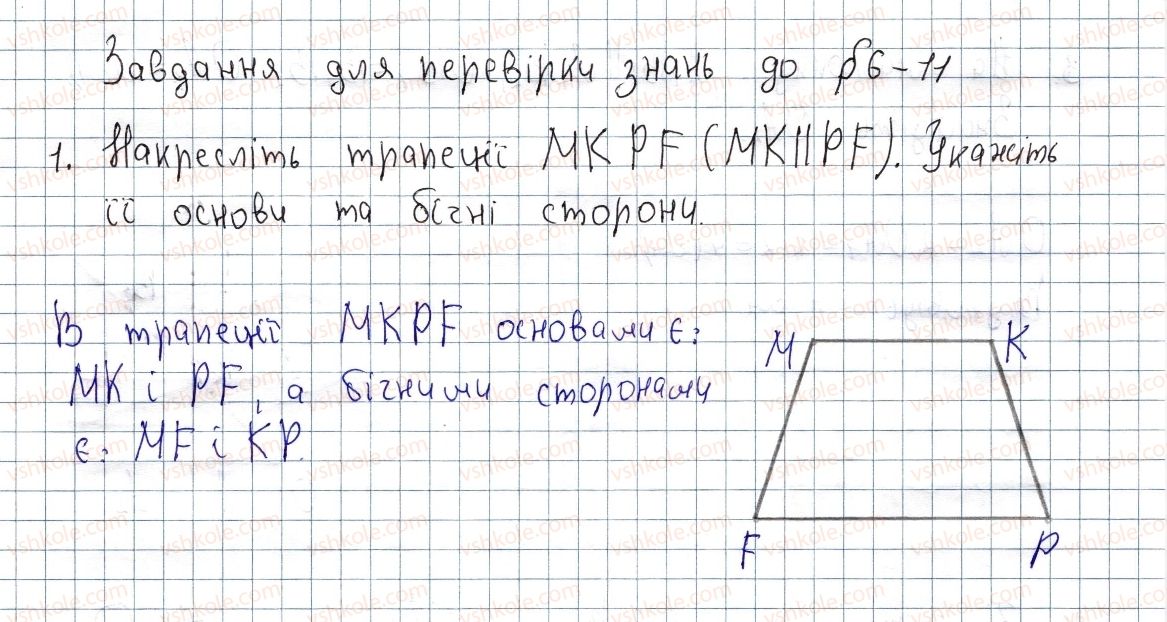 Завдання для перевірки знань до §6-11
1. Накресліть трапеції MKPF (MK||PF). Укажіть
її основи та бічні сторони.
В трапеції MKPF основами є:
MK і PF, а бічними сторонами
є: MF і KP.
M K
F P